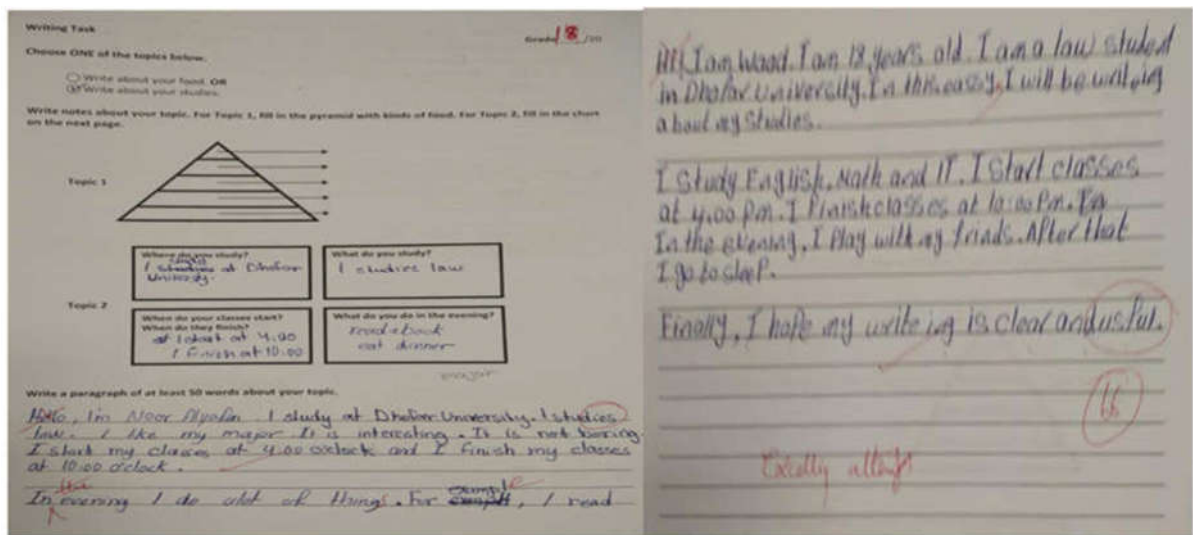 Writing Task
Grade 18 /20
Choose ONE of the topics below.
Write about your food. OR
Write about your studies.
Write notes about your topic. For Topic 1, fill in the pyramid with kinds of food. For Topic 2, fill in the chart
on the next page.
Topic 1
Topic 2
Where do you study?
study
I at Dhofar
University.
What do you study?
I studies law
When do your classes start?
When do they finish?
at I start at 4.00
I finish at 10:00
What do you do in the evening?
read ebook
eat dinner
major
Write a paragraph of at least 50 words about your topic.
Hello, I'm Noor I study at Dhofar University. I studies
law. I like my major. It is interesting. It is not boring
I start my classes at 4.00 o'clock and I finish my classes
at 10:00 o'clock.
the
In evening I do alot of things. For example, I read
Hi, I am Waad. I am 18 years old. I am a law student
in Dhofar University. In this eassy, I will be writeing
about my studies.
I Study English, Math and IT. I Start classes
at 4:00 Pm. I Finish classes at 10:00 Pm. In
In the evening, I Play with my friends. After that
I go to sleep.
Finally, I hope my writeing is clear and usful.